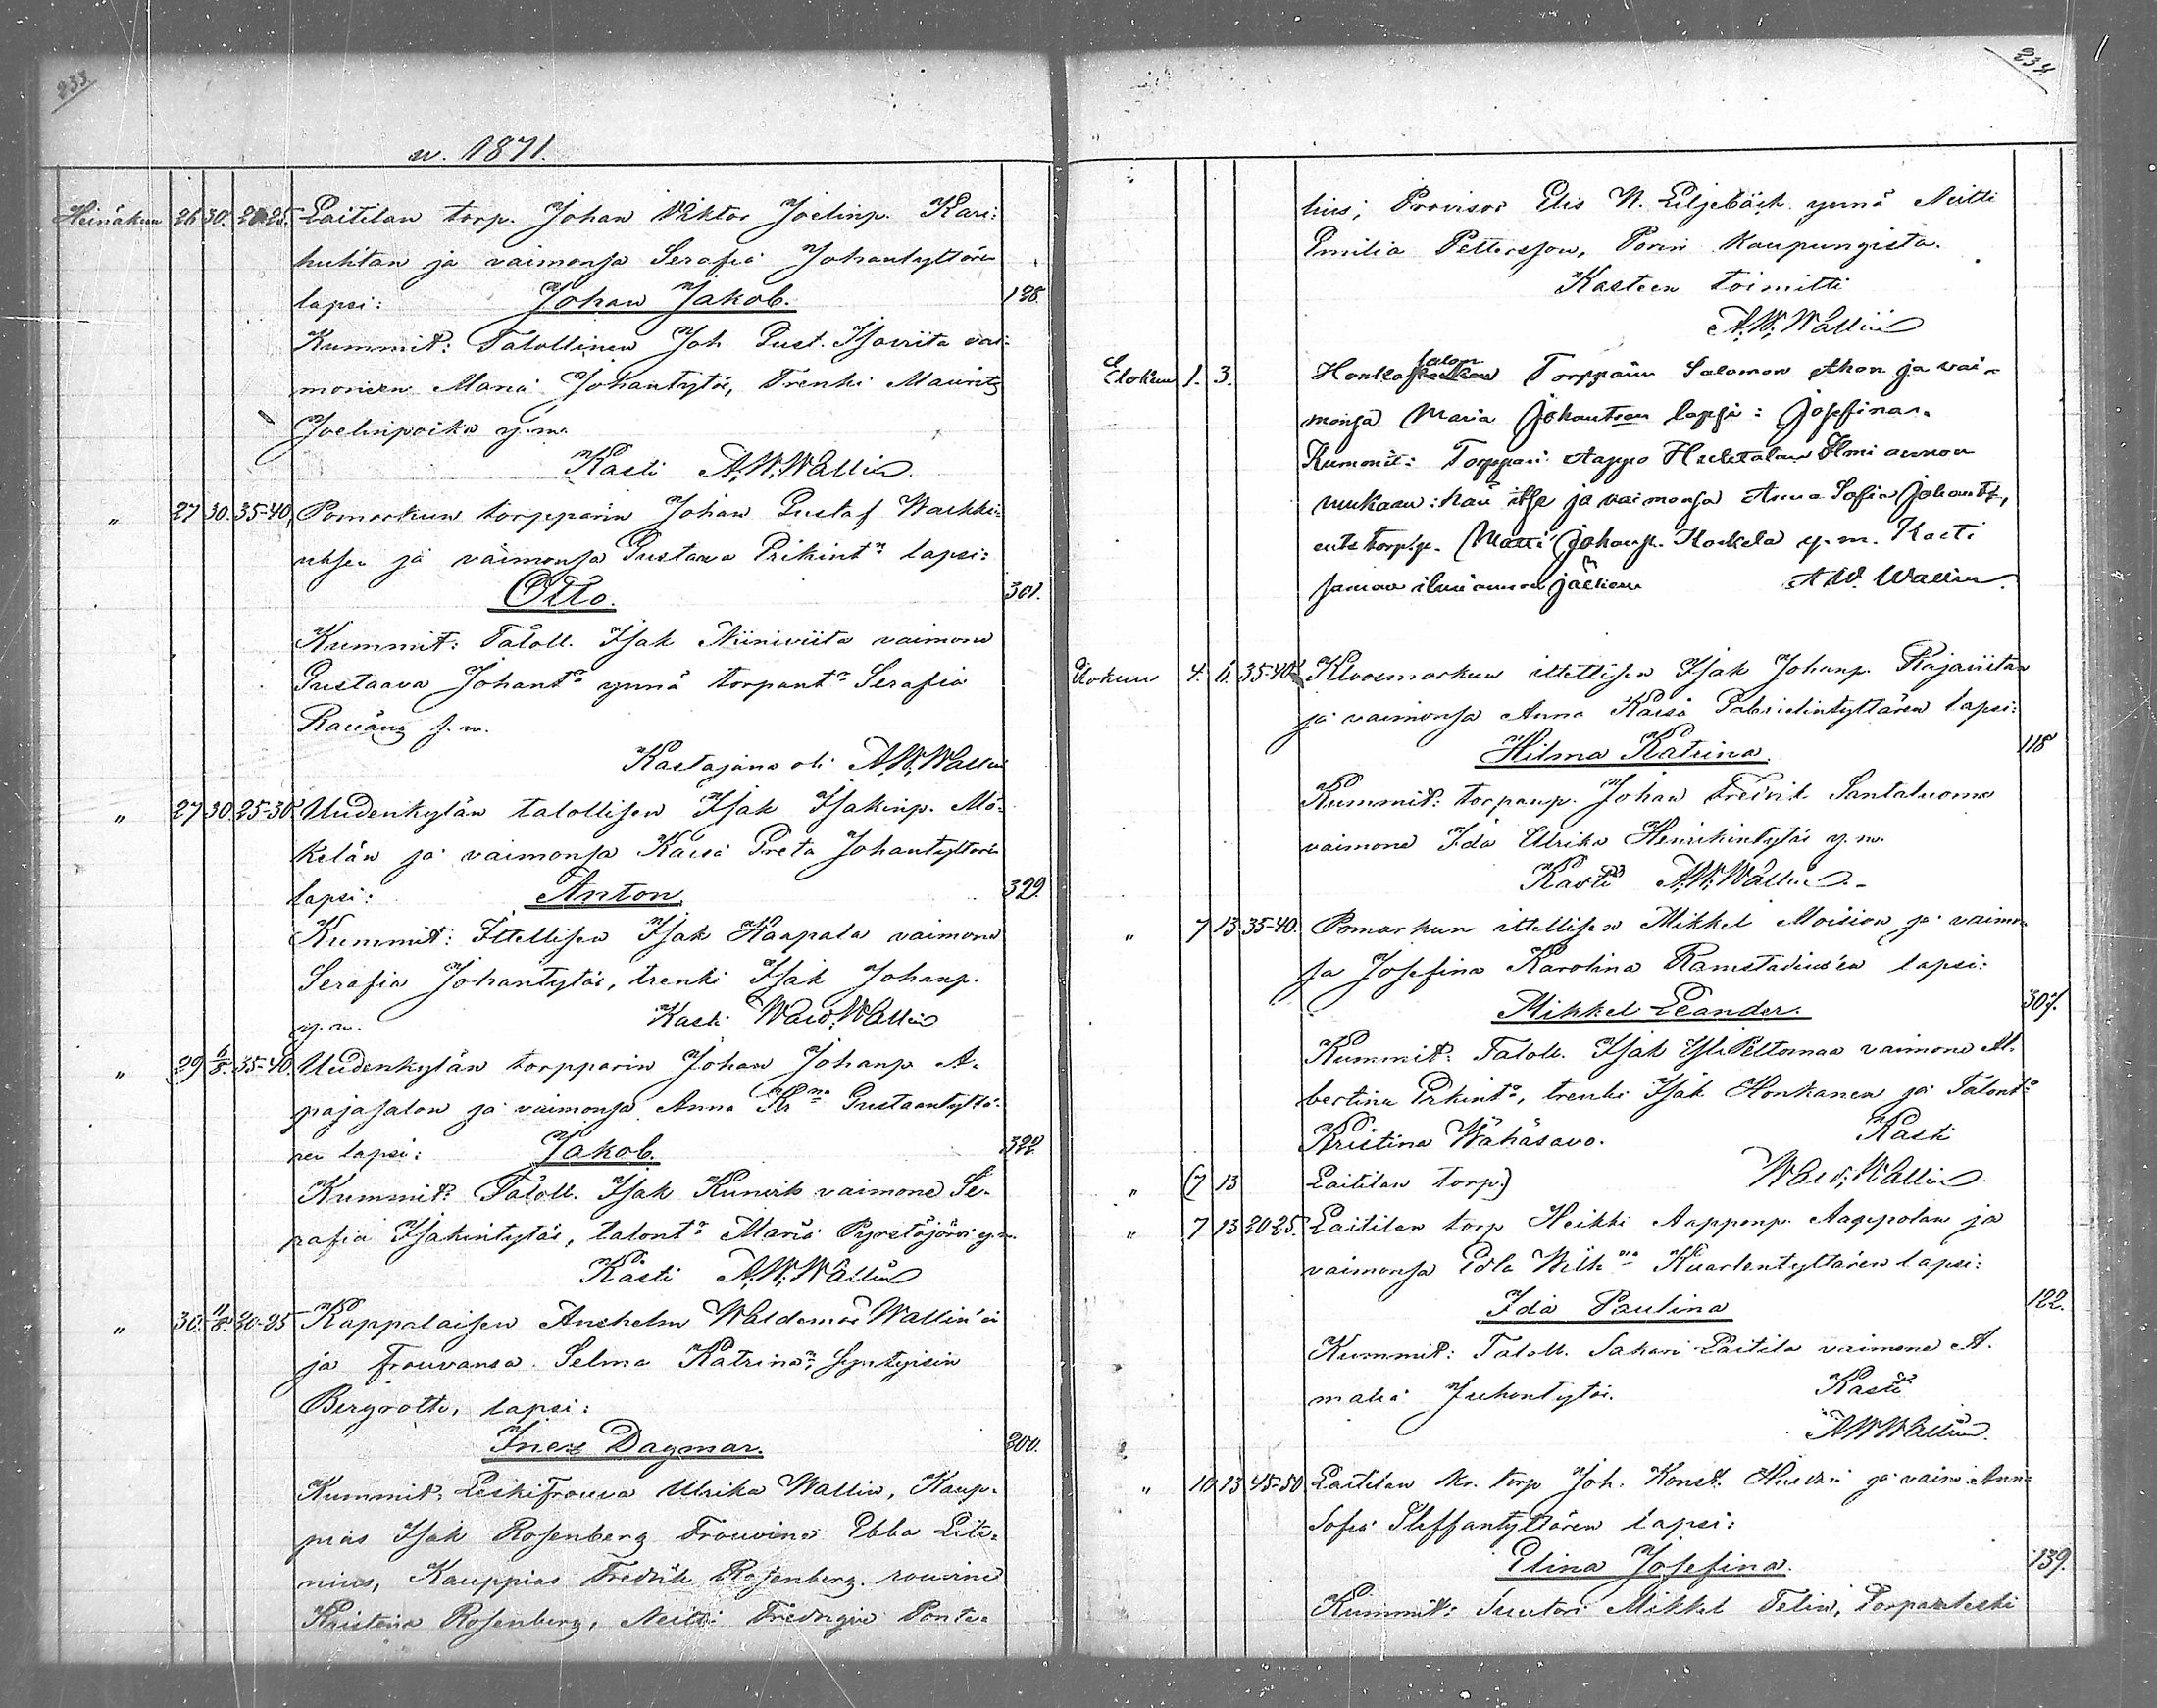 233
v. 1871.
Heinäkuu 26 30. 20-25. Laitilan torp. Johan Viktor Joelinp. Kari-
huhtan ja vaimonsa Serafia Johantyttären
lapsi: Johan Jakob. 128
Kummit: Talollinen Joh Gust. Isoviita vai-
moneen Maria Johantytär, Trenki Maurits
Joelinpoika y.m.
Kasti A.W. Wallin.
" 27 30. 35-40. Pomarkun torpparin Johan Gustaf
ja vaimonsa Gustava Erikint:n lapsi:
Otto. 301.
Kummit: Taloll. Isak Niiniviita vaimone
Gustaava Johant:r ynnä torpant:r Serafia
Kastajana oli A.W. Wallin
" 27 30. 25-30. Uudenkylän talollisen Isak Isakinp. Mä-
kelän ja vaimonsa Kaisa Greta Johantyttären
lapsi: Anton. 329.
Kummit: Ittellisen Isak Haapala vaimone
Serafia Johantytär, trenki Isak Johanp.
y.m. Kasti Wald. Wallin
" 29 6/8. 35-40. Uudenkylän torpparin Johan Johanp A-
pajasalon ja vaimonsa Anna Kr:na Gustaantyttä-
ren lapsi: Jakob. 322
Kummit: Taloll. Isak Kunvik vaimone Se-
rafia Isakintytär, talont:r Maria Pyrstöjärvi y.m.
Kasti A.W. Wallin
" 30. 11/8. 20-25 Kappalaisen Anshelm Waldemar Wallin'in
ja frouvansa Selma Katrina:n, syntyisin
Bergroth, lapsi:
Inez Dagmar. 200.
Kummit: LeskiFrouva Ulrika Wallin, Kaup-
pias Isak Rosenberg Frouvine Ebba Lite-
nius, Kauppias Fredrik Rosenberg rouvine
Kristina Rosenberg, Neitti Fredrique Ponte-
234.
lius, Provisor Elis N. Liljebäck ynnä Neitti
Emilia Pettersson, Porin Kaupungista.
Kasteen toimitti
A.W. Wallin
Elokuu 1. 3. Honkasalon Torppariin Salomon Ahon ja vai-
monsa Maria Johantr:en lapsi: Josefina.
Kummit: Torppari Aappo Ilmi annon
mukaan: hän itse ja vaimonsa Anna Sofia Johantr,
torp.p. Matti Johanp. Koskela y.m. Kasti
saman ilmiannon jälkeen A W. Wallin.
Elokuu 4. 6. 35-40. Kloosmarkun ittellisen Isak Johanp. Rajaviitan
ja vaimonsa Anna Kaisa Gabrielintyttären lapsi:
Hilma Katrina. 118
Kummit: torpanp. Johan Fredrik Santaluoma
vaimone Ida Ulrika Henrikintytär y.m.
Kasti A.W. Wallin.
" 7 13 35-40. Pomarkun ittellisen Mikkel Moision ja vaimon-
sa Josefina Karolina Ramstadius'en lapsi:
Mikkel Leander. 307.
Kummit: Taloll. Isak YliPeltomaa vaimone Al-
bertina Erkint:r, trenki Isak Honkanen ja Talont:r
Kristina Wähäsavo. Kasti
" (7 13 Laitilan torp.) Wald. Wallin.
" 7 13 20-25. Laitilan torp Heikki Aapponp. Aappolan ja
vaimonsa Edla Wilh:na Kaarlentyttären lapsi:
Ida Paulina 122.
Kummit: Taloll. Sakari Laitila vaimone A-
malia Juhontytär. Kasti
A W Wallin.
" 10 13 45-50 Laitilan kr. torp Joh. Konst. ja vaim: Anna
Sofia Steffantyttären lapsi:
Elina Josefina. 139.
Kummit: Suutari Mikkel Felin, Torpanleski